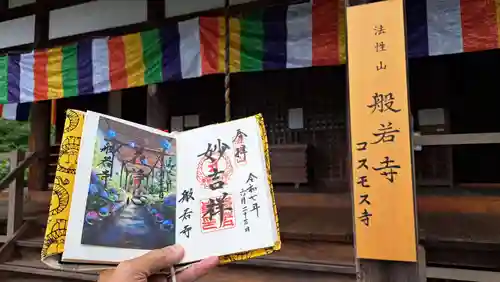 法性山
般若寺
コスモス寺
奉拝
妙吉祥
令和七年
六月二十三日
般若寺
般若寺